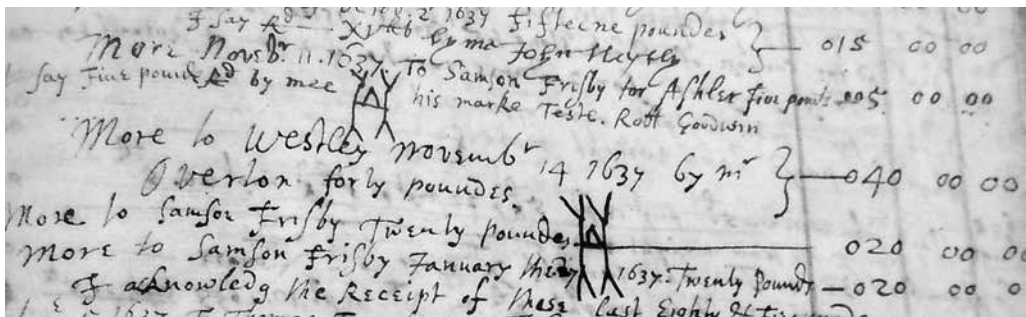 1637 Fifteene poundes
I say Rd by me John Heyth } — 015 00 00
More Novebr. 11. 1637 To Samson Frisby for Ashler Five pounds 005 00 00
I say Five pounds Rd by mee his marke Teste. Robt Goodwin
More to Westley Novembr 14 1637 by mr } — 040 00 00
Overton forty poundes.
More to Samson Frisby Twenty poundes 020 00 00
More to Samson Frisby January the 1637. Twenty Pounds — 020 00 0
I acknowledg the Receipt of these last Eighty
1637 To Thomas